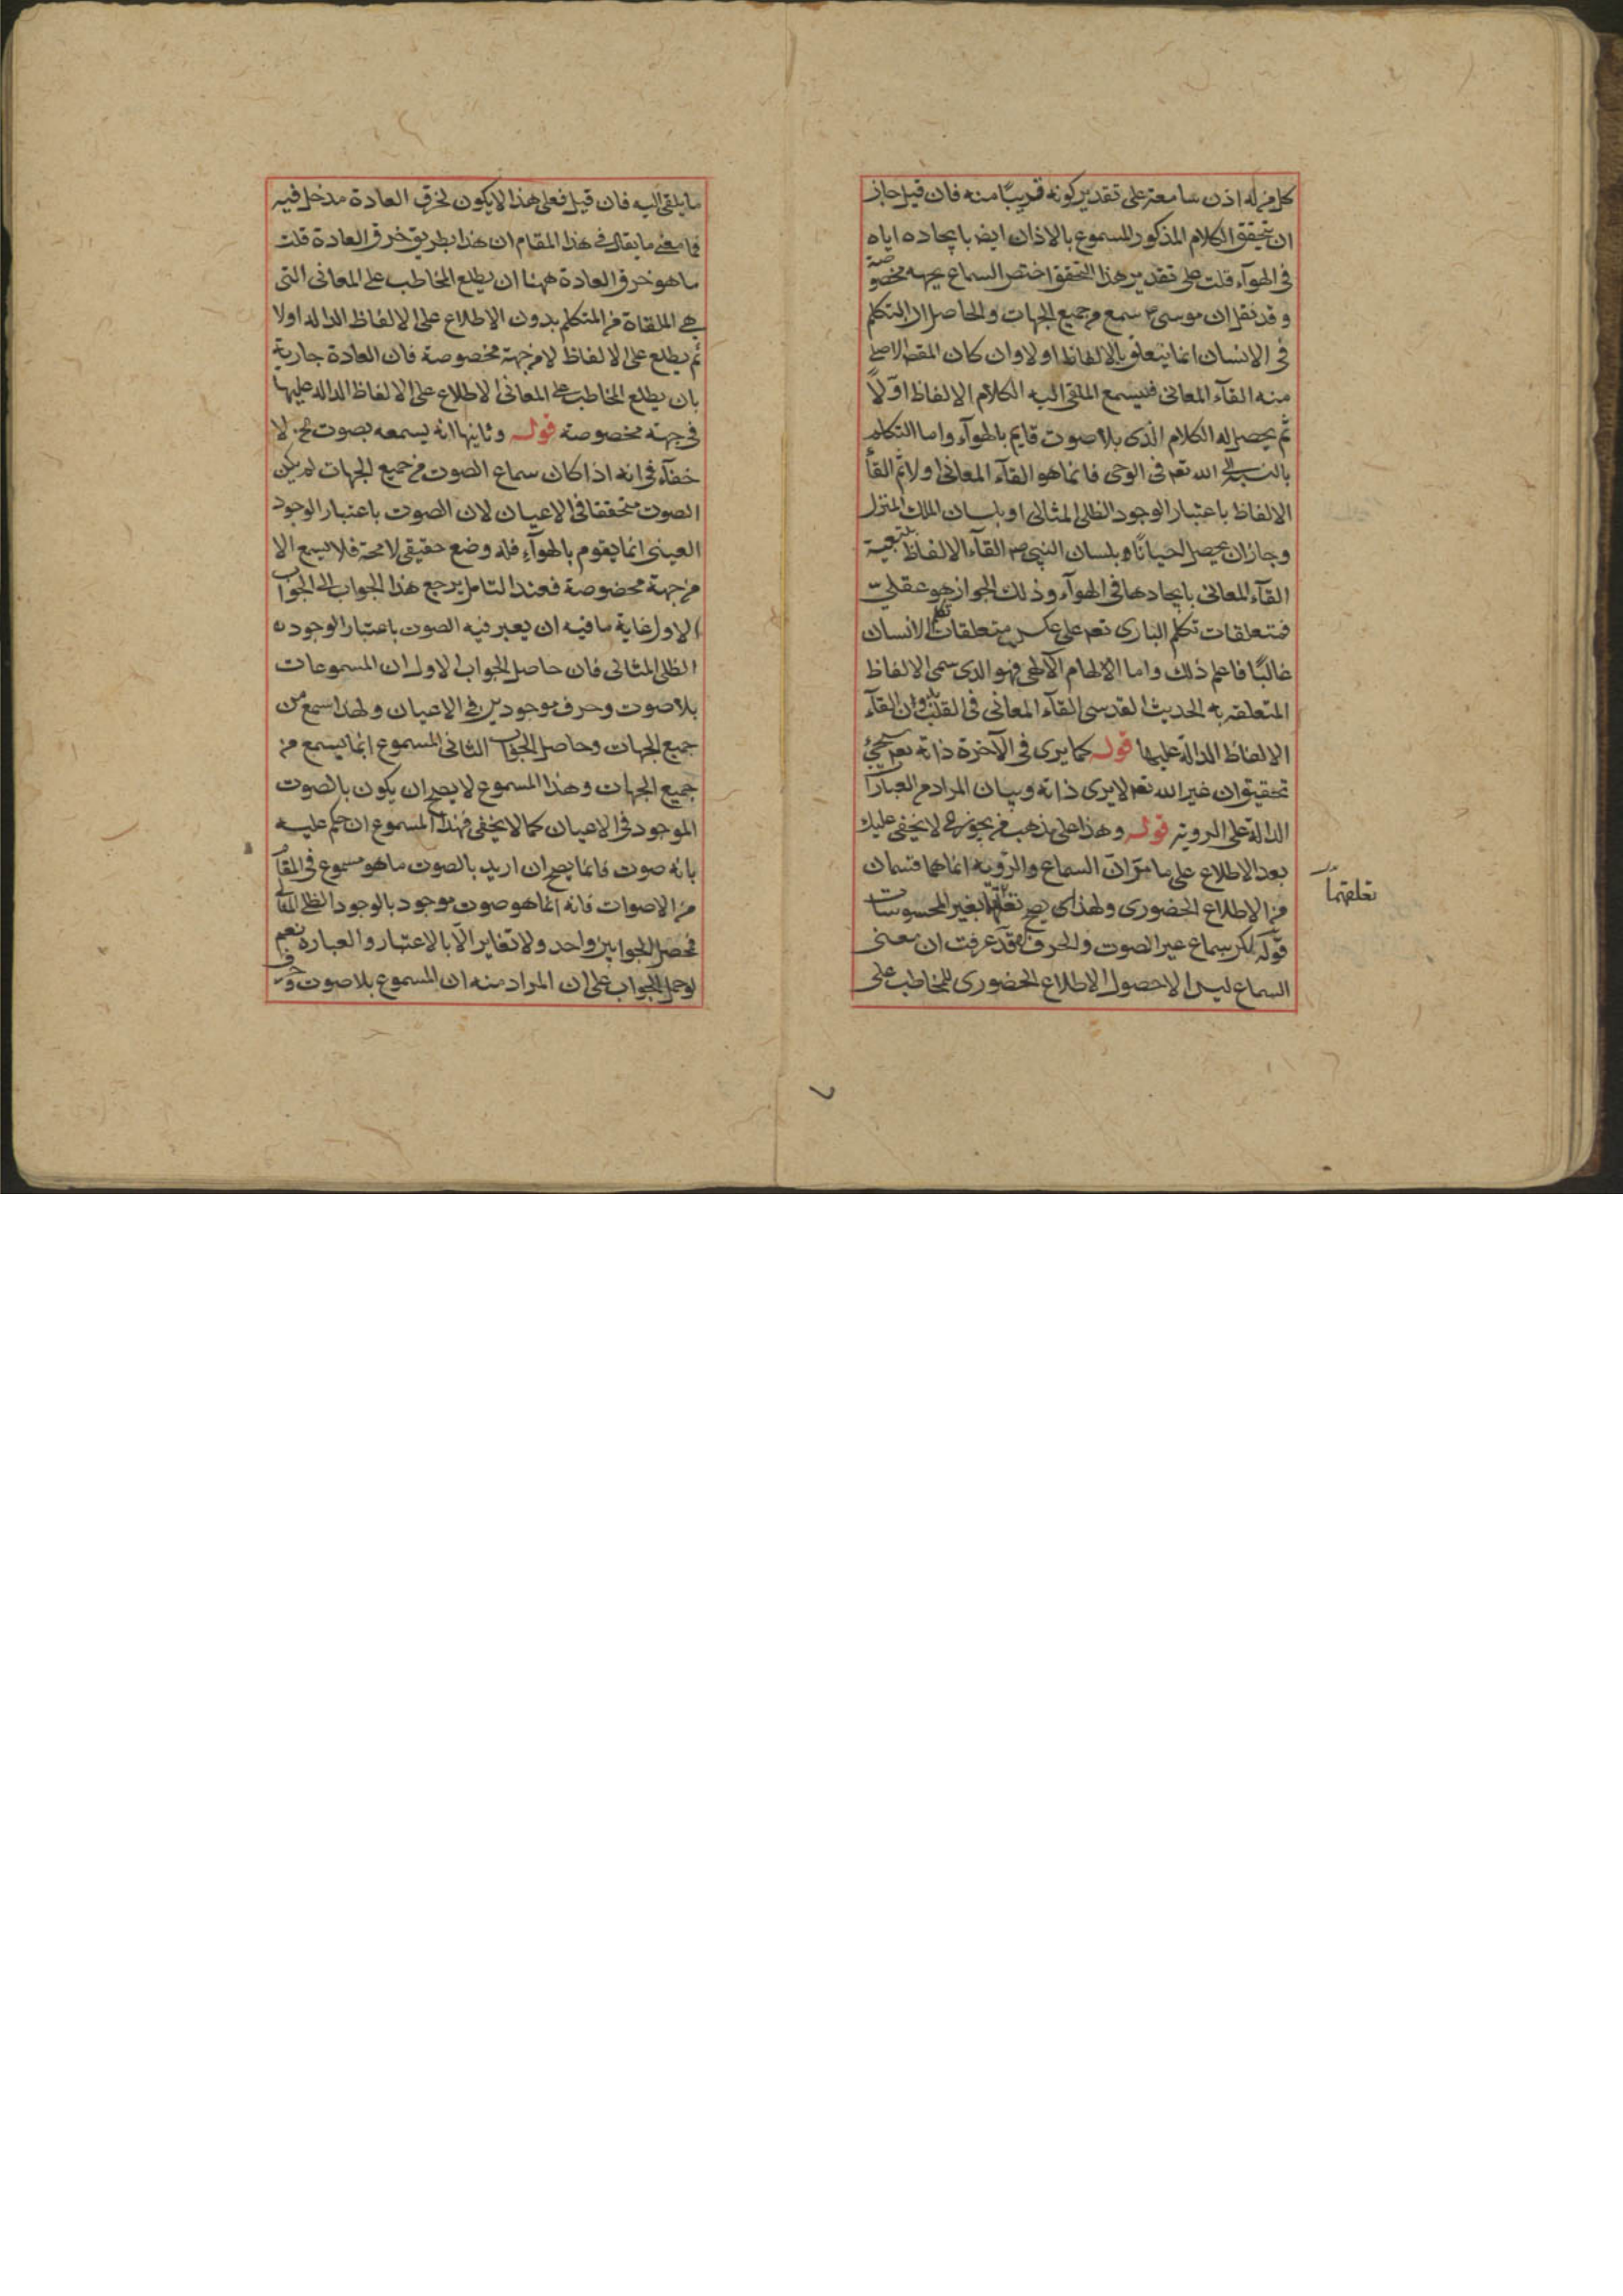 كل من له اذن سامعة على تقدير كونه قريبًا منه فان قيل جاز
ان يتحقق الكلام المذكور المسموع بالاذان ايض بايجاده اياه
فى الهوآء قلت على تقدير هذا التحقق اختص السماع بجهة مخصوصة
و قد نقل ان موسى ع سمع من جميع الجهات والحاصل ان التكلم
فى الانسان انما يتعلق بالالفاظ اولا وان كان المقص الاصلى
منه القآء المعانى فيسمع الملقى اليه الكلام الالفاظ اوّلاً
ثم يحصل له الكلام الذى بلا صوت قايم بالهوآء واما التكلم
بالنسبة الى الله تعم فى الوحى فانما هو القآء المعانى اولا ثم القآء
الالفاظ باعتبار الوجود الظلى المثالى او بلسان الملك المنزل
وجاز ان يحصل احيانًا و بلسان النبي ص القآء الالفاظ بتبعية
القآء المعانى بايجادها فى الهوآء وذلك الجواز هو عقلى
فمتعلقات تكلم البارى تعم على عكس متعلقات تكلم الانسان
غالبًا فاعلم ذلك واما الالهام الالهى فهو الذى سمى الالفاظ
المتعلقه به الحديث القدسى القآء المعانى فى القلب وان القآء
الالفاظ الدالة عليها قوله كما يرى فى الآخرة ذاته تعم يجئ
تحقيق ان غير الله تعم لا يرى ذاته وبيان المراد من العبارا
الدالة على الروية قوله وهذا على مذهب من يجوز الى لا يخفى عليك
بعد الاطلاع على ما مرّ انّ السماع والرؤية انما هما قسمان
من الاطلاع الحضورى ولهذا يصح تعلقهما بغير المحسوسات
تعلقهما
قوله لكن سماع غير الصوت والحرف قد عرفت ان معنى
السماع ليس الا حصول الاطلاع الحضورى للمخاطب على
ما يلقى اليه فان قيل فعلى هذا لا يكون لخرق العادة مدخل فيه
فما معنى ما يقال فى هذا المقام ان هذا بطريق خرق العادة قلت
ما هو خرق العادة ههنا ان يطلع المخاطب على المعانى التى
هى الملقاة من المتكلم بدون الاطلاع على الالفاظ الداله اولا
ثم يطلع على الالفاظ لا من جهة مخصوصة فان العادة جارية
بان يطلع المخاطب على المعانى الاطلاع على الالفاظ الداله عليها
فى جهة مخصوصة قوله وثانيها انه يسمعه بصوت الخ لا
خفآء فى انه اذا كان سماع الصوت من جميع الجهات لم يكن
الصوت متحققا فى الاعيان لان الصوت باعتبار الوجود
العينى انما يقوم بالهوآء فله وضع حقيقى لا محة فلا يسمع الا
من جهة مخصوصة فعند التامل يرجع هذا الجواب الى الجواب
الاول غاية ما فيه ان يعبر فيه الصوت باعتبار الوجوده
الظلى المثالى فان حاصل الجواب الاول ان المسموعات
بلا صوت وحرف موجودين فى الاعيان ولهذا سمع من
جميع الجهات وحاصل الجواب الثانى المسموع انما يسمع من
جميع الجهات وهذا المسموع لا يصح ان يكون بالصوت
الموجود فى الاعيان كما لا يخفى فهذا المسموع ان حكم عليه
بانه صوت فانما يصح ان اريد بالصوت ما هو مسموع فى المقا
من الاصوات فانه انما هو صوت موجود بالوجود الظلى المثالى
فحصل الجوابين واحد ولا تغاير الّا بالاعتبار والعبارة نعم
لو حمل الجواب على ان المراد منه ان المسموع بلا صوت وحرف
٧